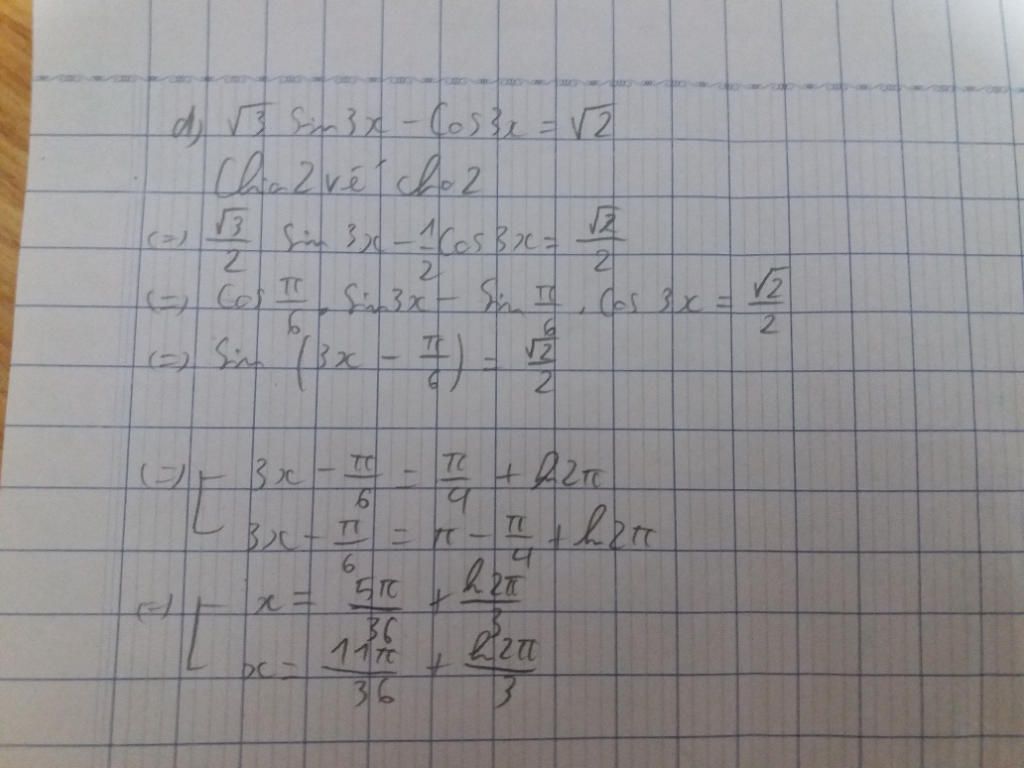 d, √3 sin3x - Cos3x = √2
Chia 2 vế cho 2
(=) √3/2 sin 3x - 1/2 cos3x = √2/2
(=) Cos π/6 . sin3x - sin π/6 . cos 3x = √2/2
(=) sin (3x - π/6) = √2/2
(=) [ 3x - π/6 = π/4 + k2π
3x - π/6 = π - π/4 + k2π
(=) [ x = 5π/36 + k2π/3
x = 11π/36 + k2π/3